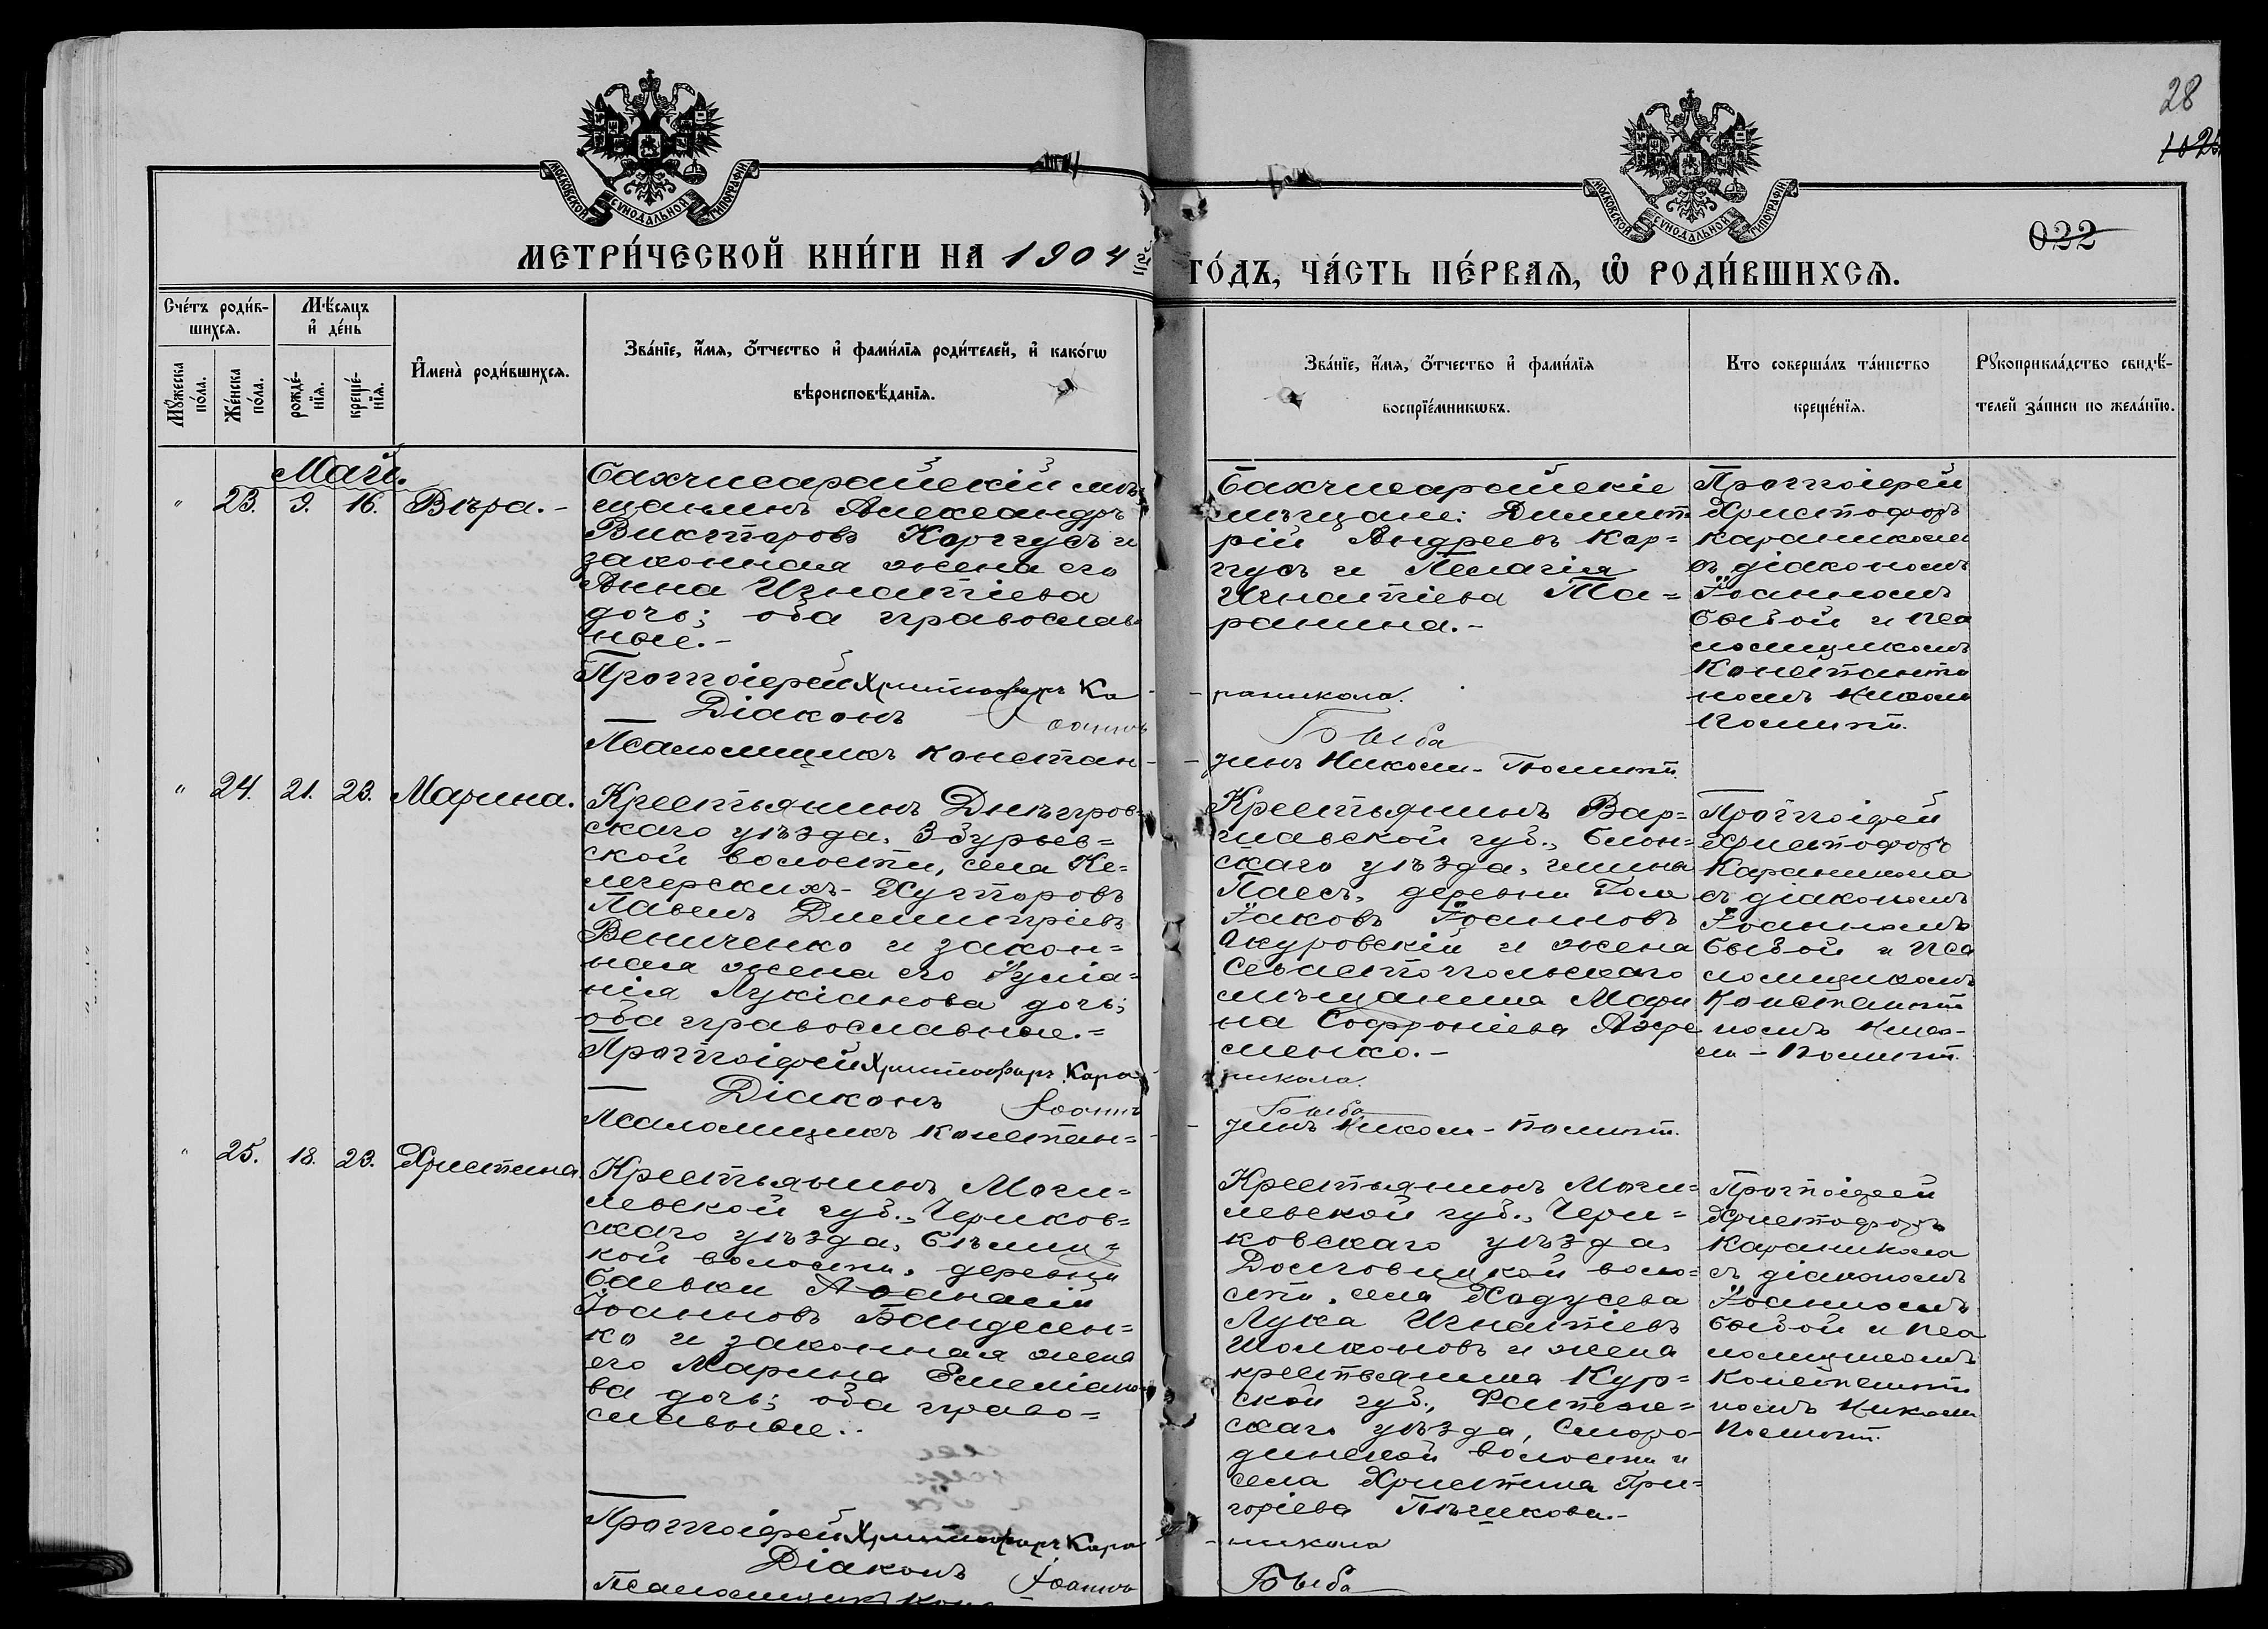 28
102
022
МОСКОВСКОЙ СѴНОДАЛЬНОЙ ТИПОГРАФІИ
МОСКОВСКОЙ СѴНОДАЛЬНОЙ ТИПОГРАФІИ
МЕТРИ́ЧЕСКОЙ КНИ́ГИ НА 1904
ГО́ДЪ, ЧА́СТЬ ПЕ́РВАЯ, Ѡ РОДИ́ВШИХСЯ.
Сче́тъ роди́в-
шихся.
Мѣ́сяцъ
и де́нь
Му́жеска
по́ла.
Же́нска
по́ла.
рожде́-
нїя.
креще́-
нїя.
И́мена̀ роди́вшихся.
Зва́нїе, и́мя, ѻ́тчество и фами́лїя роди́телей, и како́гѡ
вѣроисповѣ́данїя.
Зва́нїе, и́мя, ѻ́тчество и фами́лїя
воспрїе́мникѡвъ.
Кто соверша́лъ та́инство
креще́нїя.
Рꙋкоприкла́дство свидѣ́-
телей за́писи по жела́нїю.
Май.
" 23. 9. 16. Вѣра.-
Бахчисарайскій мѣ-
щанинъ Александръ
Викторовъ Коргусъ и
законная жена его
Анна Игнатіева
дочь; оба православ
ные.-
Протоіерей Христофоръ Ка-
Діаконъ Іоаннъ
Псаломщикъ Констан-
Бахчисарайскіе
мѣщане: Димит
рій Андреевъ Кор=
гусъ и Пелагія
Игнатіева Та=
ранина.-
-раникола.
Быба
-тинъ Николи-Помитп.
Протоіерей
Христофоръ
Караникола
съ діакономъ
Іоанномъ
Быбой и пса
ломщикомъ
Константи
номъ Николи
Помитп.
" 24. 21. 23. Марина.
Крестьянинъ Днѣпров-
скаго уѣзда, Збурьев=
ской волости, села Ке=
легерскихъ-Хуторовъ
Павелъ Димитріевъ
Величенко и закон=
ная жена его Іуліа=
нія Лукіанова дочь;
оба православные.=
Протоіерей Христофоръ Кара
Діаконъ Іоаннъ
Псаломщикъ Констан=
Крестьянинъ Вар=
шавской губ., Блон=
скаго уѣзда, гмины
Паесъ, деревни Гола
Іаковъ Іоанновъ
Окуровскій и жена
Севастопольскаго
мѣщанина Мари
на Софроніева Ахре
менко.-
никола.
Быба
-тинъ Николи-Помитп.
Протоіерей
Христофоръ
Караникола
съ діакономъ
Іоанномъ
Быбой и пса
ломщикомъ
Константи
номъ Нико-
ли-Помитп.
" 25. 18. 23. Христина.
Крестьянинъ Моги=
левской губ., Чериков=
скаго уѣзда, Бѣлиц=
кой волости, деревни
Баевки Аѳанасій
Іоанновъ Банделен=
ко и законная жена
его Марина Емеліано
ва дочь; оба право=
славные..
Протоіерей Христофоръ Кара
Діаконъ Іоаннъ
Псаломщикъ Кон
Крестьянинъ Моги=
левской губ., Чери=
ковскаго уѣзда,
Долговицкой воло=
сти, села Ходусева
Лука Игнатіевъ
Шолконовъ и жена
крестьянина Кур=
ской губ., Фатеж=
скаго уѣзда, Сморо-
динской волости и
села Христина Гри=
горіева Пѣчикова.-
-никола
Быба
Протоіерей
Христофоръ
Караникола
съ діакономъ
Іоанномъ
Быбой и пса
ломщикомъ
Константи
номъ Николи
Помитп.